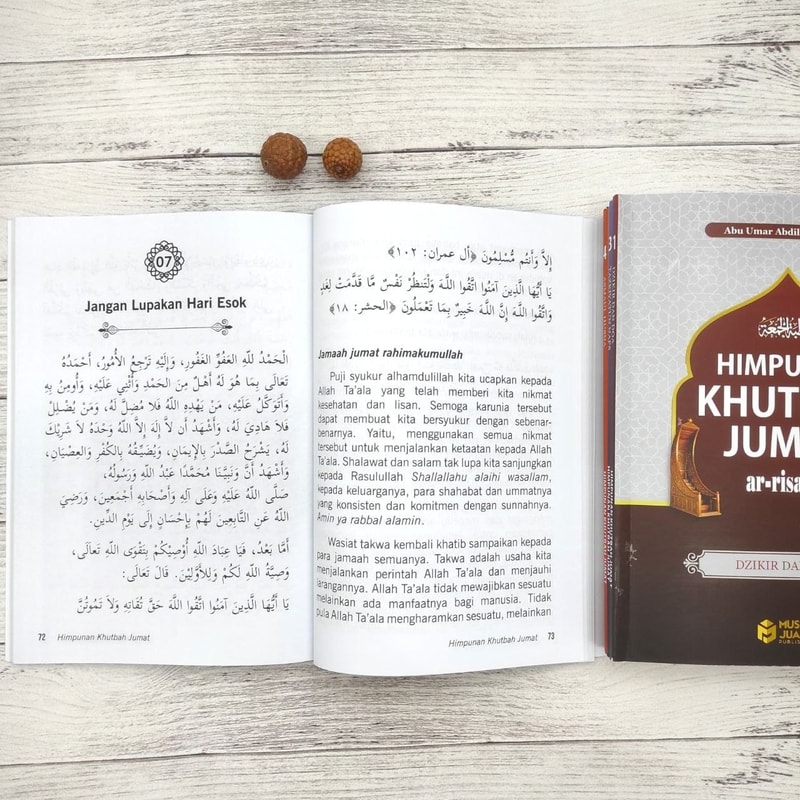 07
Jangan Lupakan Hari Esok
الْحَمْدُ للهِ العَفُوِّ الغَفُورِ، وَإِلَيْهِ تَرْجِعُ الأُمُورُ، أَحْمَدُهُ
تَعَالَى بِمَا هُوَ لَهُ أَهْلٌ مِنَ الحَمْدِ وَأُثْنِي عَلَيْهِ، وَأُومِنُ بِهِ
وَأَتَوَكَّلُ عَلَيْهِ، مَنْ يَهْدِهِ اللَّهُ فَلَا مُضِلَّ لَهُ، وَمَنْ يُضْلِلْ
فَلَا هَادِيَ لَهُ، وَأَشْهَدُ أَن لاَ إِلَهَ إِلاَّ اللَّهُ وَحْدَهُ لاَ شَرِيْكَ
لَهُ، يَشْرَحُ الصَّدْرَ بِالإِيمَانِ، وَيُضَيِّقُهُ بِالكُفْرِ وَالعِصْيَانِ،
وَأَشْهَدُ أَنَّ وَنَبِيَّنَا مُحَمَّدًا عَبْدُ اللَّهِ وَرَسُولُهُ،
صَلَّى اللَّهُ عَلَيْهِ وَعَلَى آلِهِ وَأَصْحَابِهِ أَجْمَعِينَ، وَرَضِيَ
اللَّهُ عَنِ التَّابِعِينَ لَهُمْ بِإِحْسَانٍ إِلَى يَوْمِ الدِّينِ.
أَمَّا بَعْدُ، فَيَا عِبَادَ اللَّهِ أُوْصِيْكُمْ بِتَقْوَى اللَّهِ تَعَالَى،
وَصِيَّةُ اللَّهِ لَكُمْ وَلِلأَوَّلِيْنَ. قَالَ تَعَالَى:
يَا أَيُّهَا الَّذِينَ آمَنُوا اتَّقُوا اللَّهَ حَقَّ تُقَاتِهِ وَلاَ تَمُوتُنَّ
72 Himpunan Khutbah Jumat
إِلاَّ وَأَنتُم مُّسْلِمُونَ ﴿أل عمران: ١٠٢﴾
يَا أَيُّهَا الَّذِينَ آمَنُوا اتَّقُوا اللَّهَ وَلْتَنظُرْ نَفْسٌ مَّا قَدَّمَتْ لِغَدٍ
وَاتَّقُوا اللَّهَ إِنَّ اللَّهَ خَبِيرٌ بِمَا تَعْمَلُونَ ﴿الحشر: ١٨﴾
Jamaah jumat rahimakumullah
Puji syukur alhamdulillah kita ucapkan kepada
Allah Ta'ala yang telah memberi kita nikmat
kesehatan dan lisan. Semoga karunia tersebut
dapat membuat kita bersyukur dengan sebenar-
benarnya. Yaitu, menggunakan semua nikmat
tersebut untuk menjalankan ketaatan kepada Allah
Ta'ala. Shalawat dan salam tak lupa kita sanjungkan
kepada Rasulullah Shallallahu alaihi wasallam,
kepada keluarganya, para shahabat dan ummatnya
yang konsisten dan komitmen dengan sunnahnya.
Amin ya rabbal alamin.
Wasiat takwa kembali khatib sampaikan kepada
para jamaah semuanya. Takwa adalah usaha kita
menjalankan perintah Allah Ta'ala dan menjauhi
larangannya. Allah Ta'ala tidak mewajibkan sesuatu
melainkan ada manfaatnya bagi manusia. Tidak
pula Allah Ta'ala mengharamkan sesuatu, melainkan
Himpunan Khutbah Jumat 73
31
Abu Umar Abdil
HIMPU
KHUT
JUM
ar-risa
DZIKIR DA
MUS
JUA
PUBLIS